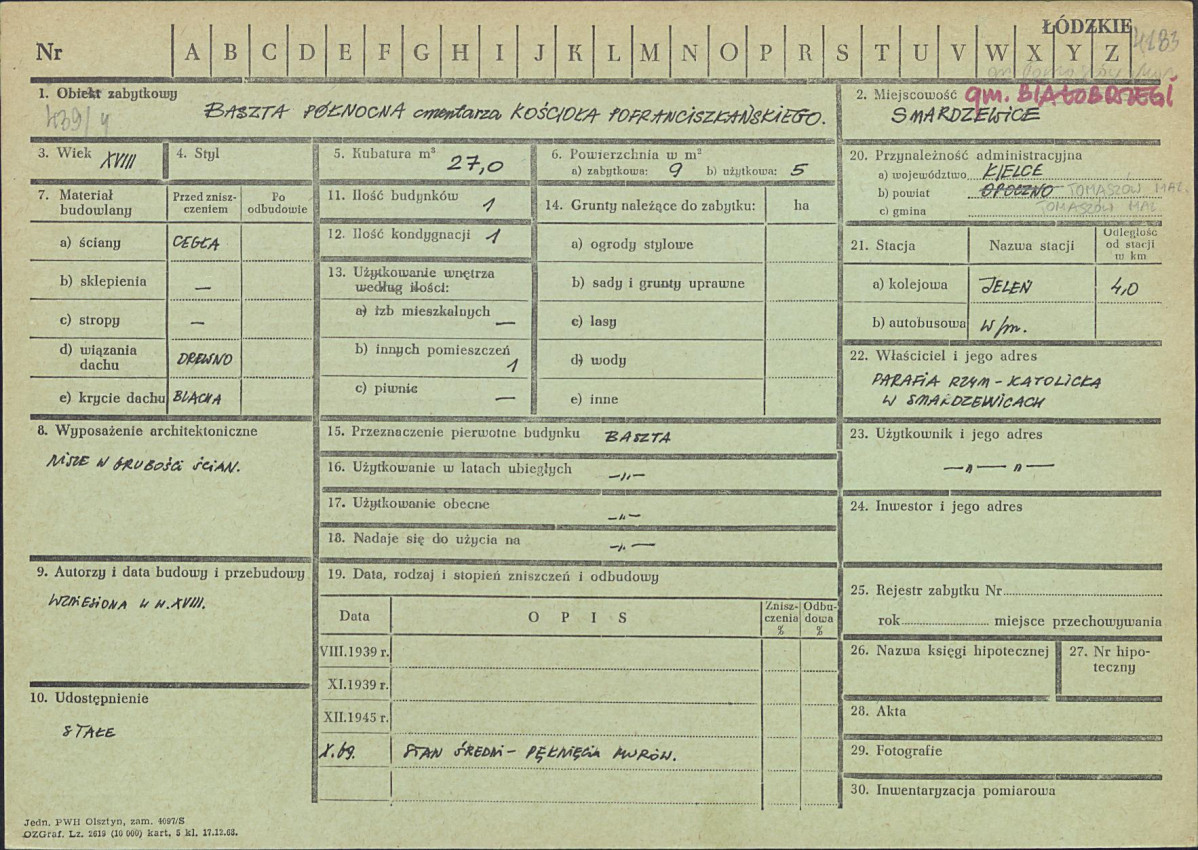 ŁÓDZKIE
Nr A B C D E F G H I J K L M N O P R S T U V W X Y Z
4183
1. Obiekt zabytkowy
439/4
BASZTA PÓŁNOCNA cmentarza KOŚCIOŁA POFRANCISZKAŃSKIEGO.
2. Miejscowość gm. BIAŁOBRZEGI
SMARDZEWICE
3. Wiek XVIII
4. Styl
5. Kubatura m³ 27,0
6. Powierzchnia w m²
a) zabytkowa: 9 b) użytkowa: 5
20. Przynależność administracyjna
a) województwo KIELCE
b) powiat OPOCZNO TOMASZÓW MAZ.
c) gmina TOMASZÓW MAZ.
7. Materiał budowlany
Przed zniszczeniem
Po odbudowie
a) ściany CEGŁA
b) sklepienia —
c) stropy —
d) wiązania dachu DREWNO
e) krycie dachu BLACHA
11. Ilość budynków 1
12. Ilość kondygnacji 1
13. Użytkowanie wnętrza
według ilości:
a) izb mieszkalnych —
b) innych pomieszczeń 1
c) piwnic —
14. Grunty należące do zabytku: ha
a) ogrody stylowe
b) sady i grunty uprawne
c) lasy
d) wody
e) inne
21. Stacja Nazwa stacji Odległość od stacji w km
a) kolejowa JELEŃ 4,0
b) autobusowa w/m.
22. Właściciel i jego adres
PARAFIA RZYM-KATOLICKA
W SMARDZEWICACH
8. Wyposażenie architektoniczne
NISZE W GRUBOŚCI ŚCIAN.
15. Przeznaczenie pierwotne budynku BASZTA
16. Użytkowanie w latach ubiegłych —„—
17. Użytkowanie obecne —„—
18. Nadaje się do użycia na —„—
23. Użytkownik i jego adres
—„—„—
24. Inwestor i jego adres
9. Autorzy i data budowy i przebudowy
WZNIESIONA W W.XVIII.
19. Data, rodzaj i stopień zniszczeń i odbudowy
Data OPIS Zniszczenia % Odbudowa %
VIII.1939 r.
XI.1939 r.
XII.1945 r.
X.69. STAN ŚREDNI - PĘKNIĘCIA MURÓW.
25. Rejestr zabytku Nr
rok miejsce przechowywania
26. Nazwa księgi hipotecznej
27. Nr hipoteczny
10. Udostępnienie
STAŁE
28. Akta
29. Fotografie
30. Inwentaryzacja pomiarowa
Jedn. PWH Olsztyn, zam. 4097/S
OZGraf. Lz. 2619 (10 000) kart, 5 kl. 17.12.68.